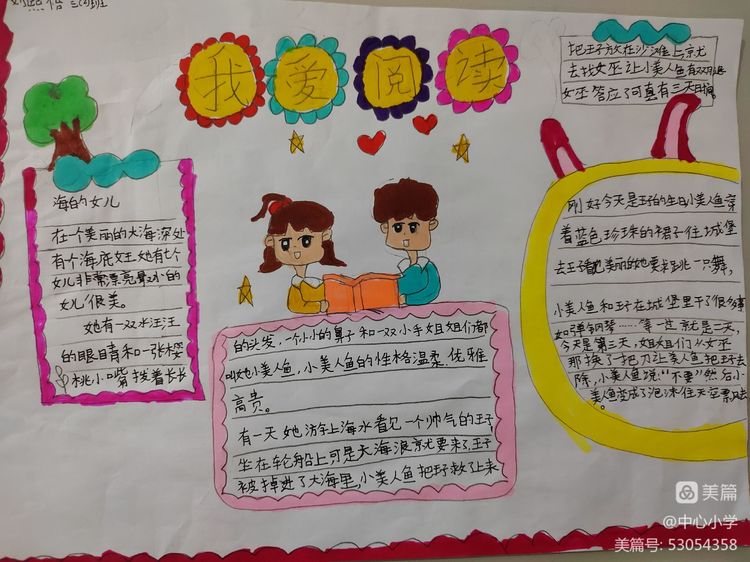 三(2)班
我爱阅读
海的女儿
在一个美丽的大海深处
有个海底女王她有七个
女儿非常漂亮最小的
女儿很美。
她有一双水汪汪
的眼睛和一张樱
桃小嘴披着长长
的头发,一个小小的鼻子和一双小手姐姐们都
叫她小美人鱼,小美人鱼的性格温柔.优雅
高贵。
有一天她游上海水看见一个帅气的王子
坐在轮船上可是大海浪京尤要来了王子
被掉进了大海里,小美人鱼把王子救了上来
把王子放在沙滩上京尤
去找女巫让小美人鱼有双腿
女巫答应了可真有三天时间。
刚好今天是王子的生日小美人鱼穿
着蓝色珍珠的裙子往城堡
去王子她美丽的她要求跳一只舞,
小美人鱼和王子在城堡里干了很多事
如弹钢琴……等一定就是三天,
今天是第三天,姐姐们从女巫
那换了把刀让美人鱼把王子去
除,小美人鱼说:"不要"然后小
美人鱼变成了泡沫往天空飘去
。
美篇
@中心小学
美篇号: 53054358